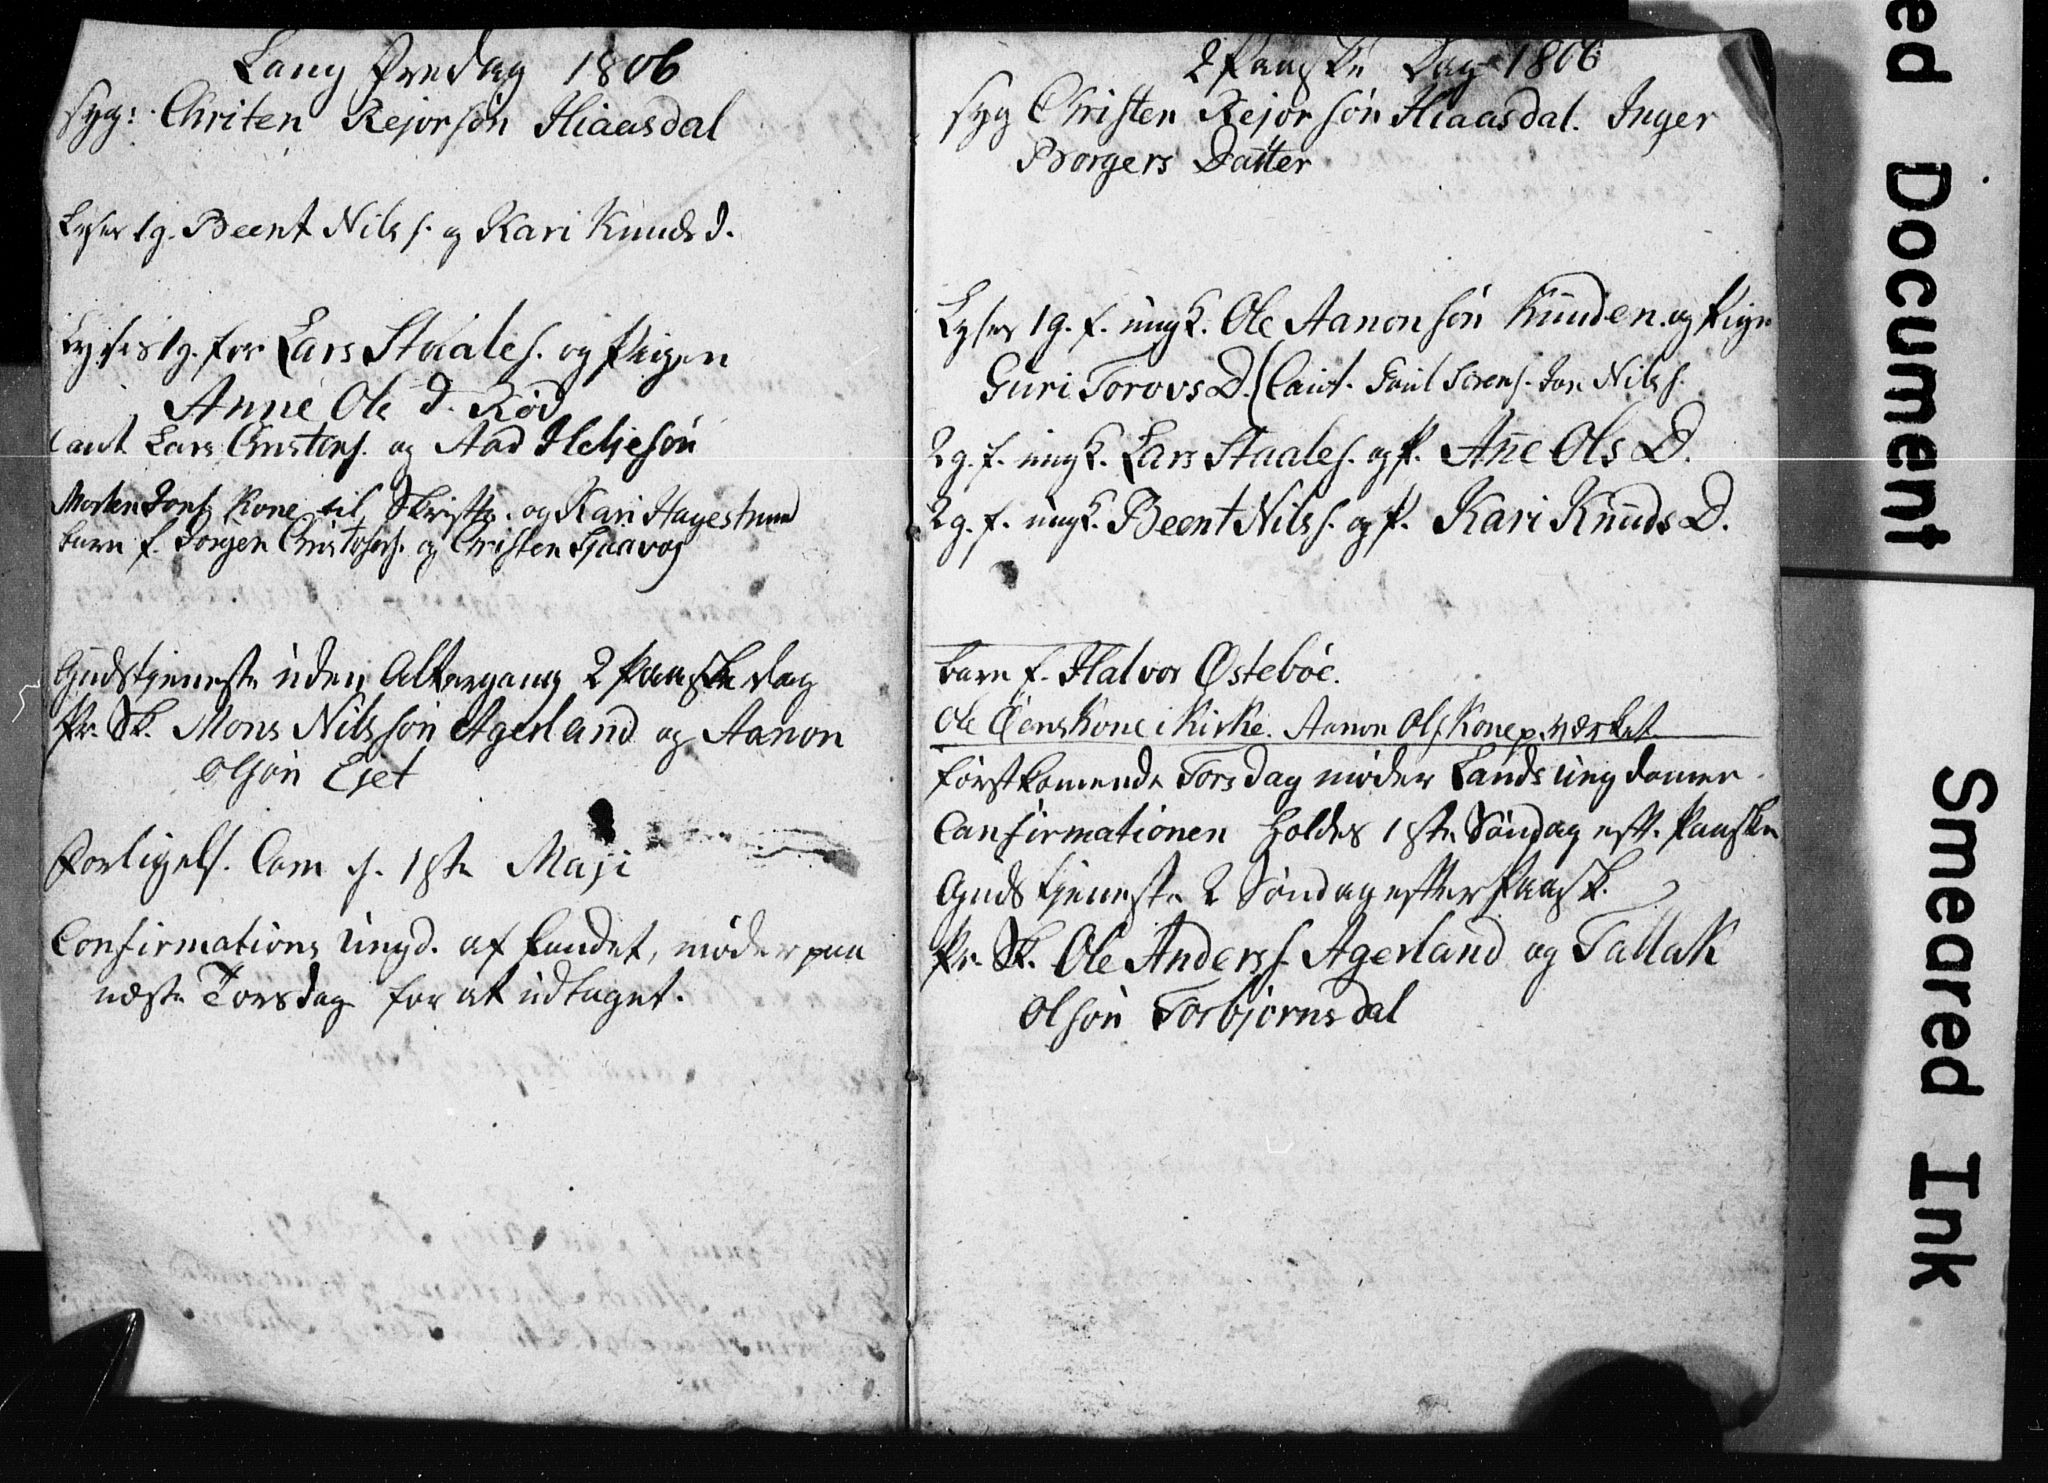 Lang Fredag 1806
syg: Chriten Rejorsön Hiaasdal
Lyses 1 g. Beent Nils s. og Kari Knuds d.
Lyses 1 g. for Lars Staales. og Pigen
Anne Ole d. Röd
Caut Lars Christens. og Aad Heljesön
Morten Jons Kone til Skrifte. og Kari Hagestrand
barn f. Jørgen Christophers. og Christen Fjaavog
Gudstjeneste uden Altergang 2 Paaske dag
Pr. Sk. Mons Nilssön Agerland og Aanon
Olsön Ejet
Forligels. Com. s. 1ste Maji
Confirmations Ungd. af Landet, møder paa
næste Torsdag for at udtaget.
2 Paaske Dag 1806
syg Christen Rejorsön Hiaasdal. Inger
Borgers Datter
Lyses 1 g. f. ungk. Ole Aanonsön Knuden. og Pige
Guri Torovs D. (Caut. Poul Sörens. Jon Nils s.
2 g. f. ungk. Lars Staales. og P. Añe Ols D.
2 g. f. ungk. Beent Nils s. og P. Kari Knuds D.
barn f. Halvor Østeböe.
Ole Öens Kone i Kirke. Aanon Ols Kone p. værket
förstkomende Torsdag møder Lands ungdomen
Confirmationen holdes 1ste Søndag eft. Paaske
Gudstjeneste 2 Søndag efter Paask.
Pr. Sk. Ole Anderss. Agerland og Tallak
Olsön Torbjörnsdal
ed Document
Smeared Ink